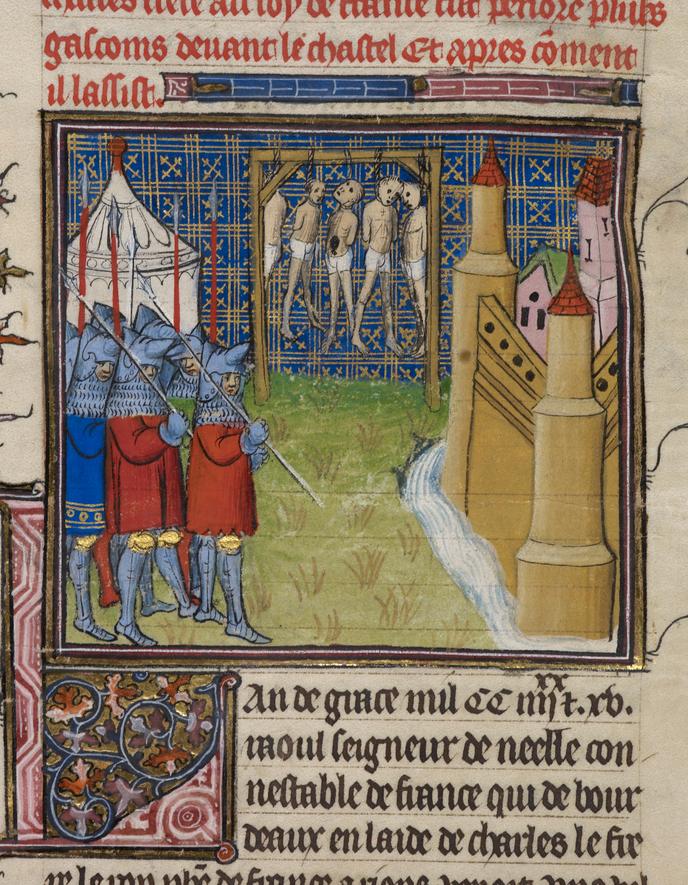 gascoms deuant le chastel Et apres cõment
il lassist.
An de grace mil CC iiij xx t. xv.
raoul seigneur de neelle con
nestable de france qui de bour
deaux en laide de charles le fre